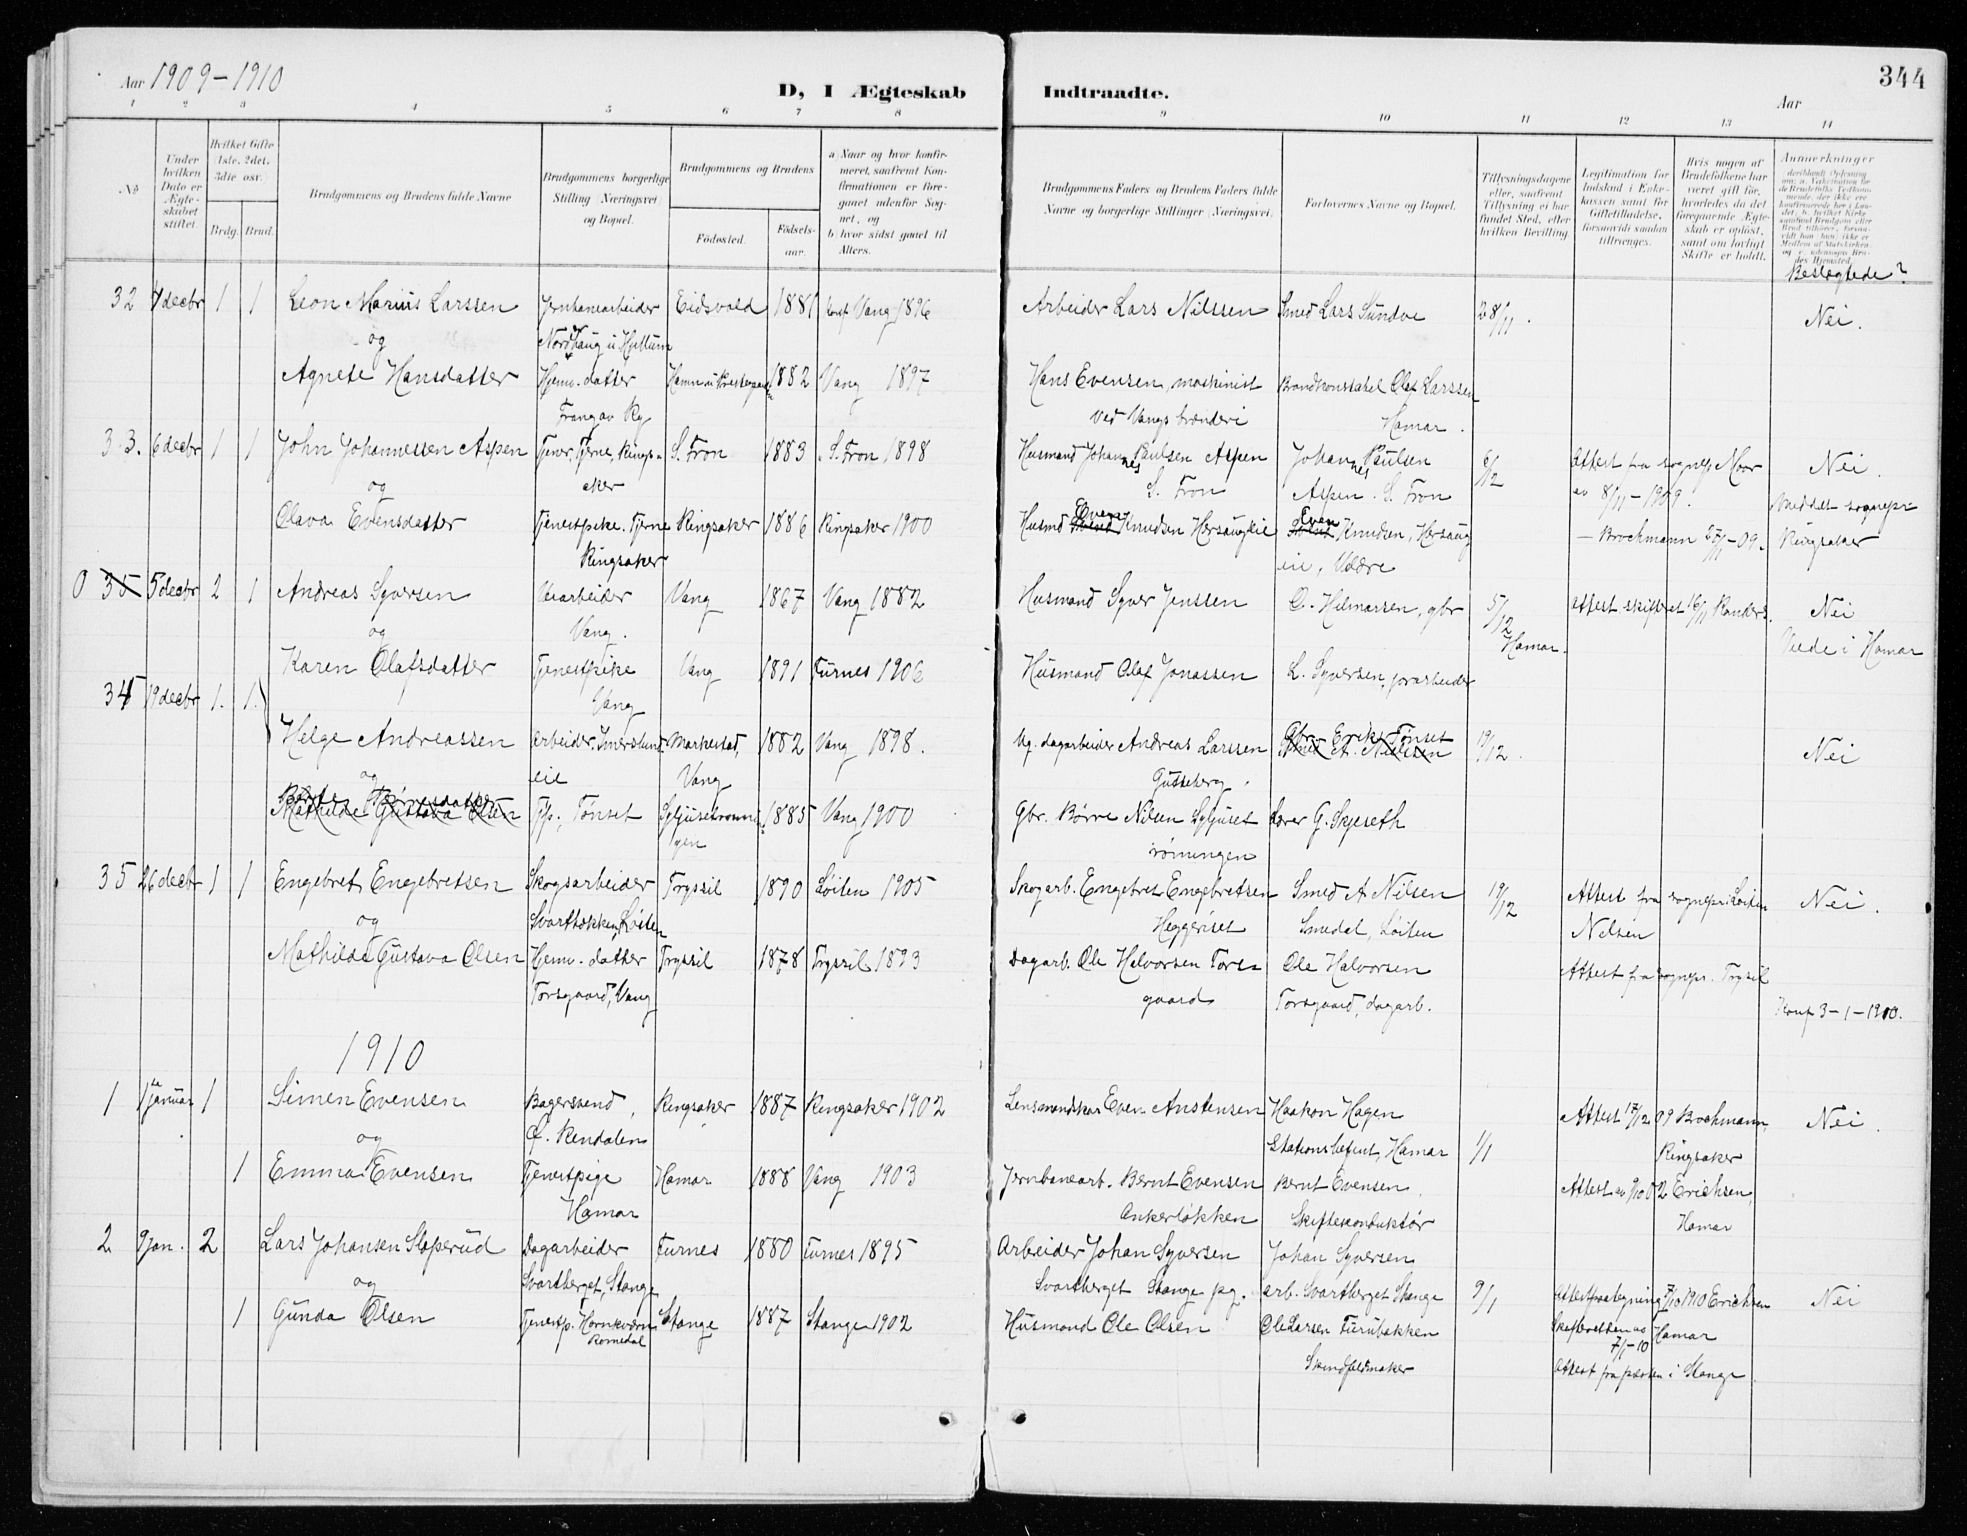 Aar 1909-1910
D, I Ægteskab Indtraadte.
Aar
344
1 2 3 4 5 6 7 8 9 10 11 12 13 14
No
Under hvilken Dato er Ægteskabet stiftet.
Hvilket Gifte 1ste. 2det. 3die osv.
Brdg. Brud.
Brudgommens og Brudens fulde Navne
Brudgommens borgerlige Stilling (Næringsvei) og Bopæl.
Brudgommens og Brudens
Fødested.
Fødselsaar.
a) Naar og hvor konfirmeret, saafremt Konfirmationen er foregaaet udenfor Sognet, og
b) hvor sidst gaaet til Alters.
Brudgommens Faders og Brudens Faders fulde Navne og borgerlige Stillinger (Næringsvei).
Forlovernes Navne og Bopæl.
Tillysningsdagene eller, saafremt Tillysning ei har fundet Sted, efter hvilken Bevilling
Legitimation for Indskud i Enkekassen samt for Giftetilladelse, forsaavidt saadan tiltrænges.
Hvis nogen af Brudefolkene har været gift før, hvorledes da det foregaaende Ægteskab er opløst, samt om lovligt Skifte er holdt.
Anmerkninger
Beslægtede?
32 7 decbr 1 1 Leon Marius Larssen Jernbanearbeider Eidsvold 1881 konf. Vang 1896 Arbeider Lars Nilssen Smed Lars Sundve 28/11. Nei.
og Nordhaug u. Hjellum
Agnete Hansdatter Hjemv. datter 1882 Vang 1897 Hans Evensen, maskinist Brandkonstabel Olaf Larssen
ved Vangs brænderi Hamar.
33. 6 decbr 1 1 John Johannessen Aspen Tjener, Tjerne, Ringsaker S. Fron 1883 S. Fron 1898 Husmand Johannes Paulsen Aspen Johannes Paulsen 6/12 Attest fra sognepr Moor Nei.
og S. Fron Aspen. S. Fron av 8/11-1909. Meddelt sognepr
Olava Evensdatter Tjenestpike. Tjerne Ringsaker 1886 Ringsaker 1900 Husmd Even Knudsen Hersaugeie Even Knudsen, Hersaug - Brochmann -09. Ringsaker
Ringsaker eie, Veldre
0 35 5 decbr 2 1 Andreas Syversen Veiarbeider Vang 1867 Vang 1882 Husmand Syver Jenssen O. Hilmarsen, gbr 5/12 Attest skifteret 16/11 Nei
og Vang. Hamar. Viede i Hamar
Karen Olafsdatter Tjenestpike Vang 1891 Furnes 1906 Husmand Olaf Jonassen L. Syversen, jordarbeider
Vang
34 19 decbr 1. 1.
Helge Andreassen Arbeider. Imerslund Markestad, 1882 Vang 1898. Ug. dagarbeider Andreas Larssen Gbr. Erik Tønset 19/12. Nei
og eie Vang Gusseberg. Smed A. Nielsen
Mathilde Gustava Olsen Tjp., Tønset 1885 Vang 1900 Gbr. Børre Nilsen Lærer G. Skjeseth
rømingen
35 26 decbr 1 1 Engebret Engebretsen Skogsarbeider Trysil 1890 Løiten 1905 Skogarb. Engebret Engebretsen Smed A Nilsen 19/12 Attest fra sognepr. Løiten Nei.
og Svartbækken, Løiten Heggeriset Smedal, Løiten Nilsen
Mathilda Gustava Olsen Hjemv. datter Trysil 1878 Trysil 1893 Dagarb. Ole Halvorsen Torsgaard Ole Halvorsen Attest fra sognepr. Trysil
Torsgaard, Vang Torsgaard, dagarb. Konf 3-1-1900.
1910
1 1 januar 1 Simen Evensen Bagersvend, Ringsaker 1887 Ringsaker 1902 Lensmandskar Even Anstensen Haakon Hagen Attest 17/12 09 Brochmann Nei.
og Ø. Rendalen Stationsbetjent, Hamar 1/1 Ringsaker
1 Emma Evensen Tjenestpige Hamar 1888 Vang 1903 Jernbanearb. Bernt Evensen Bernt Evensen. Erichsen,
Hamar Ankerløkken Skiftekonduktør Hamar
2 9 jan. 2 Lars Johansen Slaperud Dagarbeider Furnes 1880 Furnes 1895 Arbeider Johan Syversen Johan Syversen
og Svartberget, Stange Svartberget Stange pg. arb. Svartberget Stange 9/1 1910 Erichsen Nei
1 Gunda Olsen Tjenestp. Hornkværn Stange 1887 Stange 1902 Husmand Ole Olsen Ole Larsen Furubakken Hamar
Romedal Skindfeldmaker 7/1-10
Attest fra presten i Stange